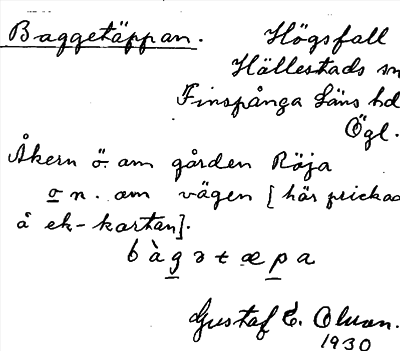 Baggetäppan. Högsfall
Hällestads sn
Finspånga Läns hd
Ögl.
Åkern ö. om gården Röja
o n. om vägen [här prickad
å ek-kartan].
bàgətæpa
Gustaf E. Olson.
1930